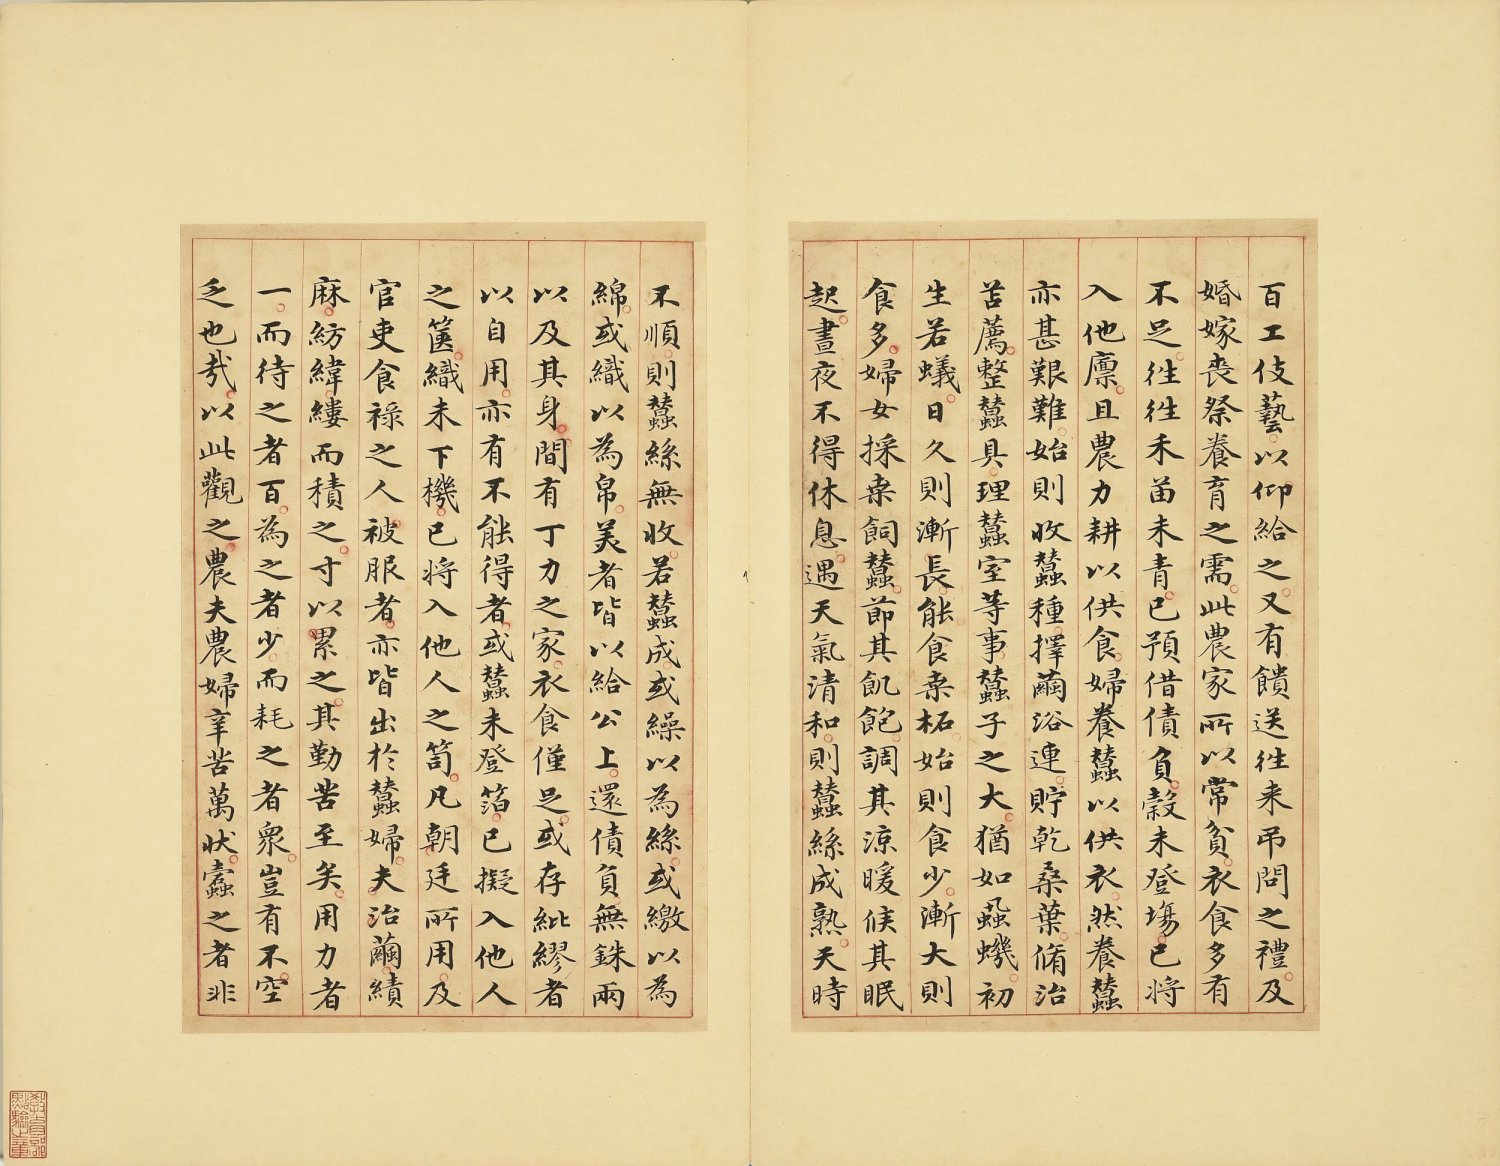 百工伎藝以仰給之又有饋送徃来吊問之禮及
婚嫁丧祭養育之需此農家所以常貧衣食多有
不足徃徃禾苗未青已預借債負穀未登塲已将
入他廪且農力耕以供食婦養蠶以供衣然養蠶
亦甚艱難始則收蠶種擇繭浴連貯乾桑葉脩治
苫薦整蠶具理蠶室等事蠶子之大猶如蟣初
生若蟻日久則漸長能食桒柘始則食少漸大則
食多婦女採桒飼蠶節其飢飽調其涼暖候其眠
起晝夜不得休息遇天氣清和則蠶絲成熟天時
不順則蠶絲無收若蠶成或繰以為絲或繳以為
綿或織以為帛美者皆以給公上還債負無銖兩
以及其身間有丁力之家衣食僅足或存紕繆者
以自用亦有不能得者或蠶未登箔已擬入他人
之篋織未下機已将入他人之笥凡朝廷所用及
官吏食禄之人被服者亦皆出於蠶婦夫治繭績
麻紡緯縷而積之寸以累之其勤苦至矣用力者
一而待之者百為之者少而耗之者衆豈有不空
乏也哉以此觀之農夫農婦辛苦萬状蠹之者非